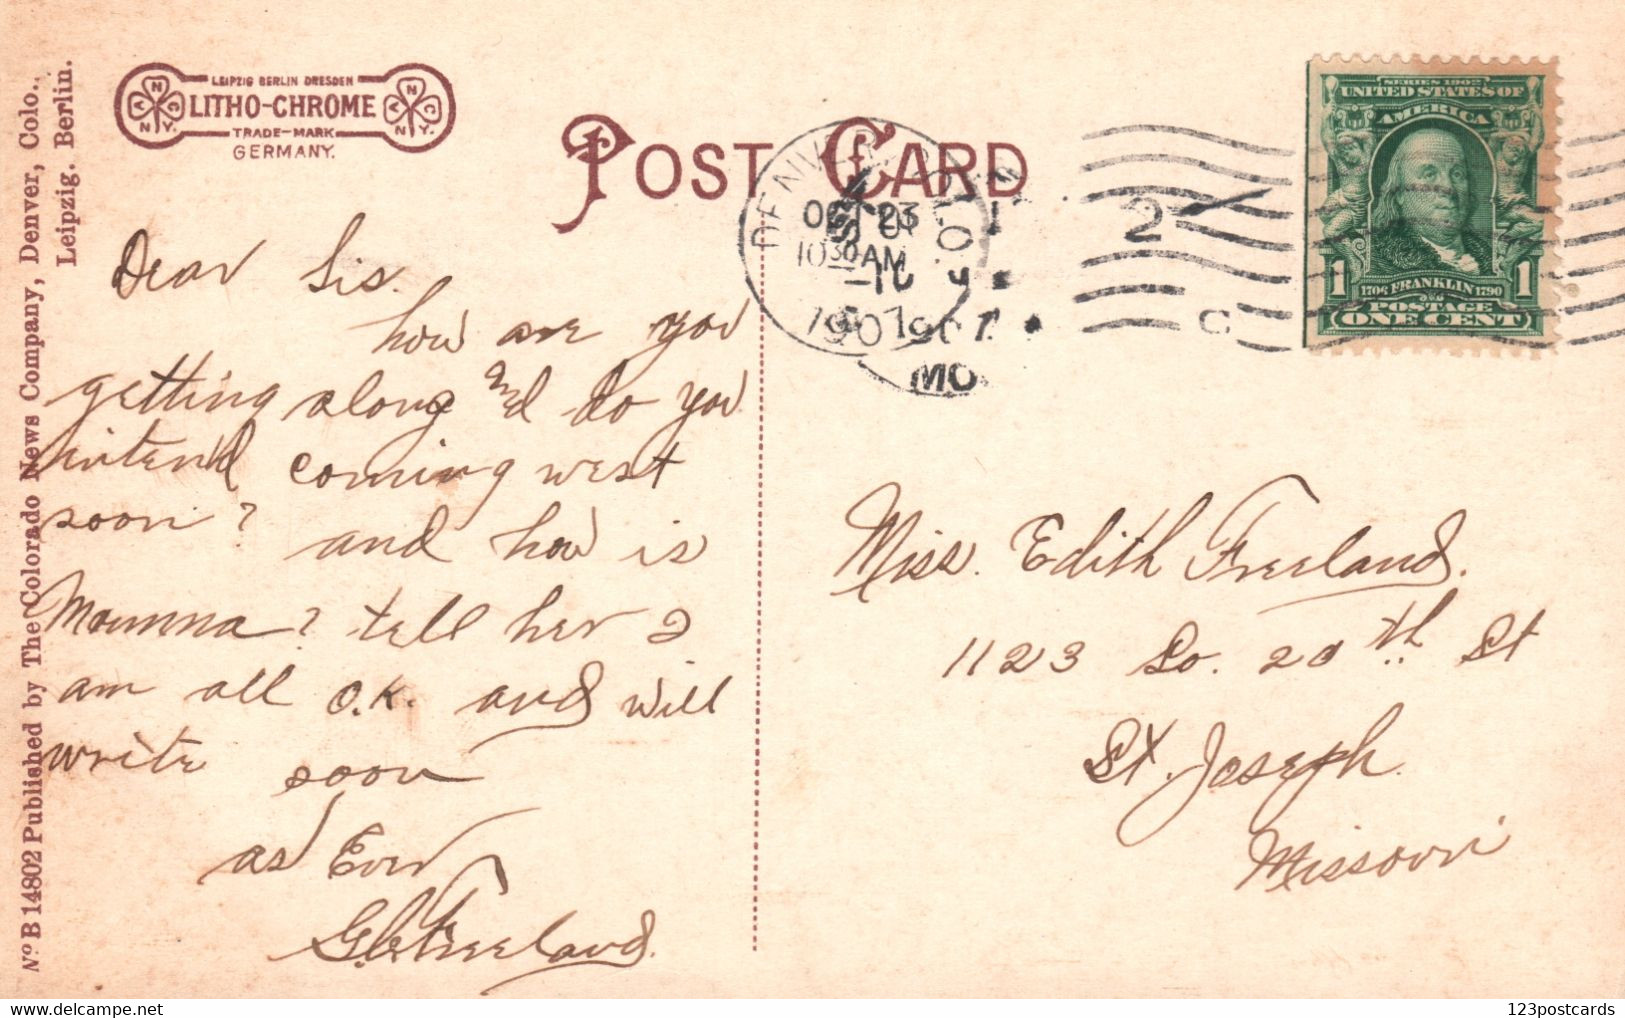 Nº B 14802 Published by The Colorado News Company, Denver, Colo.,
Leipzig. Berlin.
LEIPZIG BERLIN DRESDEN
LITHO-CHROME
TRADE-MARK
GERMANY.
POST CARD
DENVER COLO.
OCT 23
10 30 AM
1907
1907
MO
2
C
SERIES 1902
UNITED STATES OF
AMERICA
1 1706 FRANKLIN 1790 1
POSTAGE
ONE CENT
Dear Sis.
how are you
getting along and do you
intend coming west
soon? and how is
Mamma? tell her I
am all O.K. and will
write soon
as Ever
Freeland.
Miss. Edith Freeland.
1123 So. 20th St
St. Joseph.
Missouri
delcampe.net
123postcards